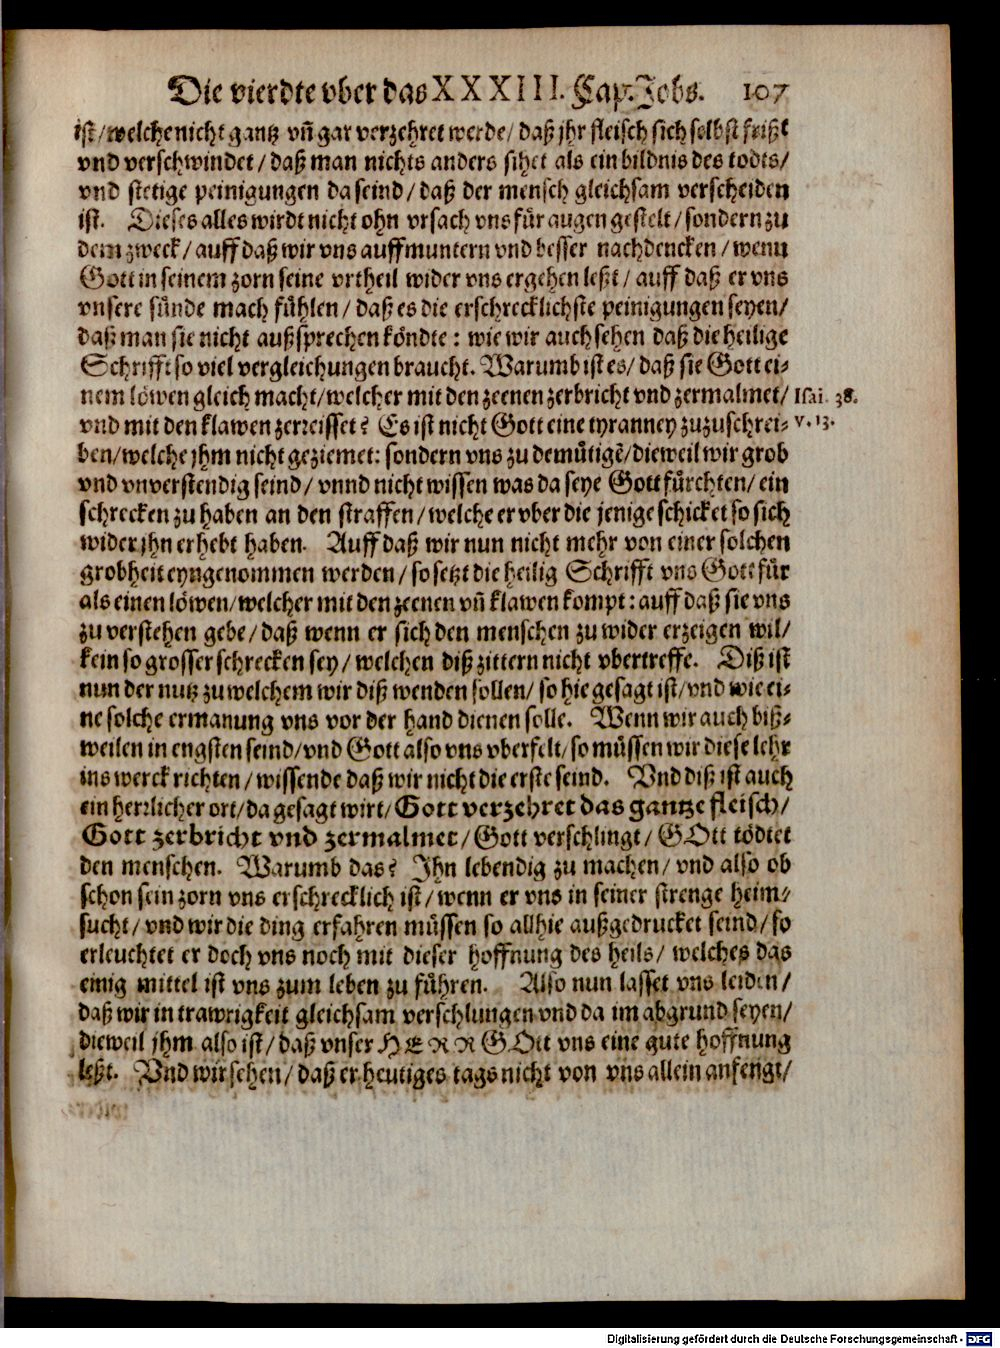 Die vierdte vber das XXXIII. Cap. Jobs. 107
ist/ welche nicht gantz vñ gar verzehret werde/ daß jhr fleisch sich selbst frißt
vnd verschwindet/ daß man nichts anders sihet als ein bildnis des todts/
vnd stetige peinigungen da seind/ daß der mensch gleichsam verscheiden
ist. Dieses alles wirdt nicht ohn vrsach vns für augen gestelt/ sondern zu
dem zweck/ auff daß wir vns auffmuntern vnd besser nachdencken/ wenn
Gott in seinem zorn seine vrtheil wider vns ergehen leßt/ auff daß er vns
vnsere sünde mach fühlen/ daß es die erschrecklichste peinigungen seyen/
daß man sie nicht außsprechen köndte: wie wir auch sehen daß die heilige
Schrifft so viel vergleichungen braucht. Warumb ist es/ daß sie Gott ei-
nem löwen gleich macht/ welcher mit den zeenen zerbricht vnd zermalmet/ Isai. 38.
vnd mit den klawen zerreisset? Es ist nicht Gott eine tyranney zuzuschrei- v. 13.
ben/ welche jhm nicht geziemet: sondern vns zu demütigẽ/ dieweil wir grob
vnd vnverstendig seind/ vnnd nicht wissen was da seye Gott fürchten/ ein
schrecken zu haben an den straffen/ welche er vber die jenige schicket so sich
wider jhn erhebt haben. Auff daß wir nun nicht mehr von einer solchen
grobheit eyngenommen werden/ so setzt die heilig Schrifft vns Gott für
als einen löwen/ welcher mit den zeenen vñ klawen kompt: auff daß sie vns
zu verstehen gebe/ daß wenn er sich den menschen zu wider erzeigen wil/
kein so grosser schrecken sey/ welchen diß zittern nicht vbertreffe. Diß ist
nun der nutz zu welchem wir diß wenden sollen/ so hie gesagt ist/ vnd wie ei-
ne solche ermanung vns vor der hand dienen solle. Wenn wir auch biß-
weilen in engsten seind/ vnd Gott also vns vberfelt/ so müssen wir diese lehr
ins werck richten/ wissende daß wir nicht die erste seind. Vnd diß ist auch
ein herrlicher ort/ da gesagt wirt/ Gott verzehret das gantze fleisch/
Gott zerbricht vnd zermalmet/ Gott verschlingt/ GOtt tödtet
den menschen. Warumb das? Ihn lebendig zu machen/ vnd also ob
schon sein zorn vns erschrecklich ist/ wenn er vns in seiner strenge heim-
sucht/ vnd wir die ding erfahren müssen so allhie außgedrucket seind/ so
erleuchtet er doch vns noch mit dieser hoffnung des heils/ welches das
einig mittel ist vns zum leben zu führen. Also nun lasset vns leiden/
daß wir in trawrigkeit gleichsam verschlungen vnd da im abgrund seyen/
dieweil jhm also ist/ daß vnser HERR GOtt vns eine gute hoffnung
leßt. Vnd wir sehen/ daß er heutiges tags nicht von vns allein anfengt/
Digitalisierung gefördert durch die Deutsche Forschungsgemeinschaft - DFG